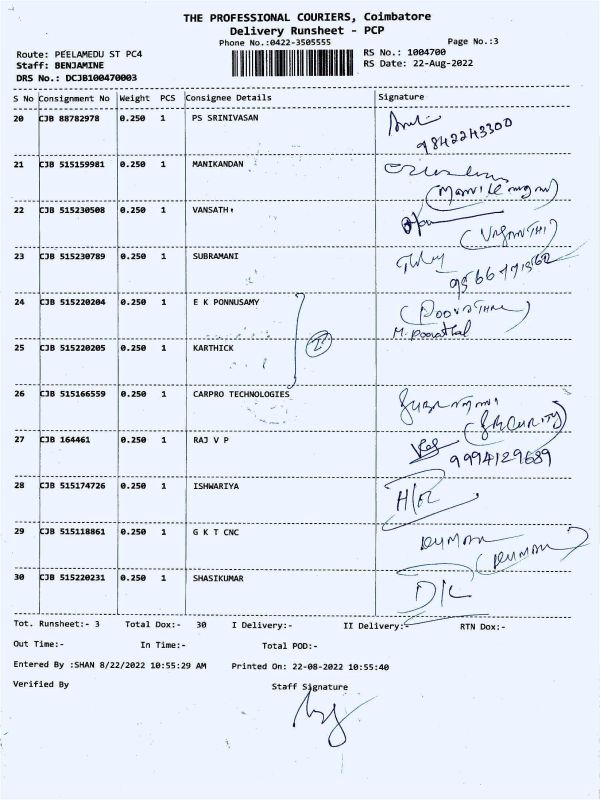 THE PROFESSIONAL COURIERS, Coimbatore
Delivery Runsheet - PCP
Phone No.:0422-3505555 Page No.:3
Route: PEELAMEDU ST PC4 RS No.: 1004700
Staff: BENJAMINE RS Date: 22-Aug-2022
DRS No.: DCJB100470003
S No Consignment No Weight PCS Consignee Details Signature
20 CJB 88782978 0.250 1 PS SRINIVASAN
9842243300
21 CJB 515159981 0.250 1 MANIKANDAN
22 CJB 515230508 0.250 1 VANSATH
(VASANTHI)
23 CJB 515230789 0.250 1 SUBRAMANI
24 CJB 515220204 0.250 1 E K PONNUSAMY
(POOVATHAL)
M. Poovathal
25 CJB 515220205 0.250 1 KARTHICK
26 CJB 515166559 0.250 1 CARPRO TECHNOLOGIES
(SECURITY)
27 CJB 164461 0.250 1 RAJ V P
9994129689
28 CJB 515174726 0.250 1 ISHWARIYA
29 CJB 515118861 0.250 1 G K T CNC
30 CJB 515220231 0.250 1 SHASIKUMAR
D/L
Tot. Runsheet:- 3 Total Dox:- 30 I Delivery:- II Delivery:- RTN Dox:-
Out Time:- In Time:- Total POD:-
Entered By :SHAN 8/22/2022 10:55:29 AM Printed On: 22-08-2022 10:55:40
Verified By Staff Signature